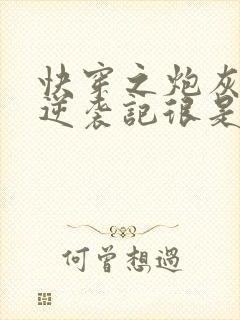 快穿之炮灰
逆袭記很是
何曾想過